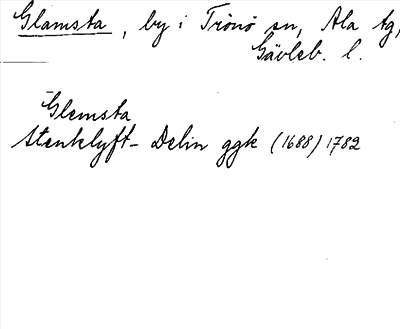 Glamsta, by i Trönö sn, Ala tg,
Gävleb. l.
Glemsta
Stenklyft- Delin ggk (1688) 1782